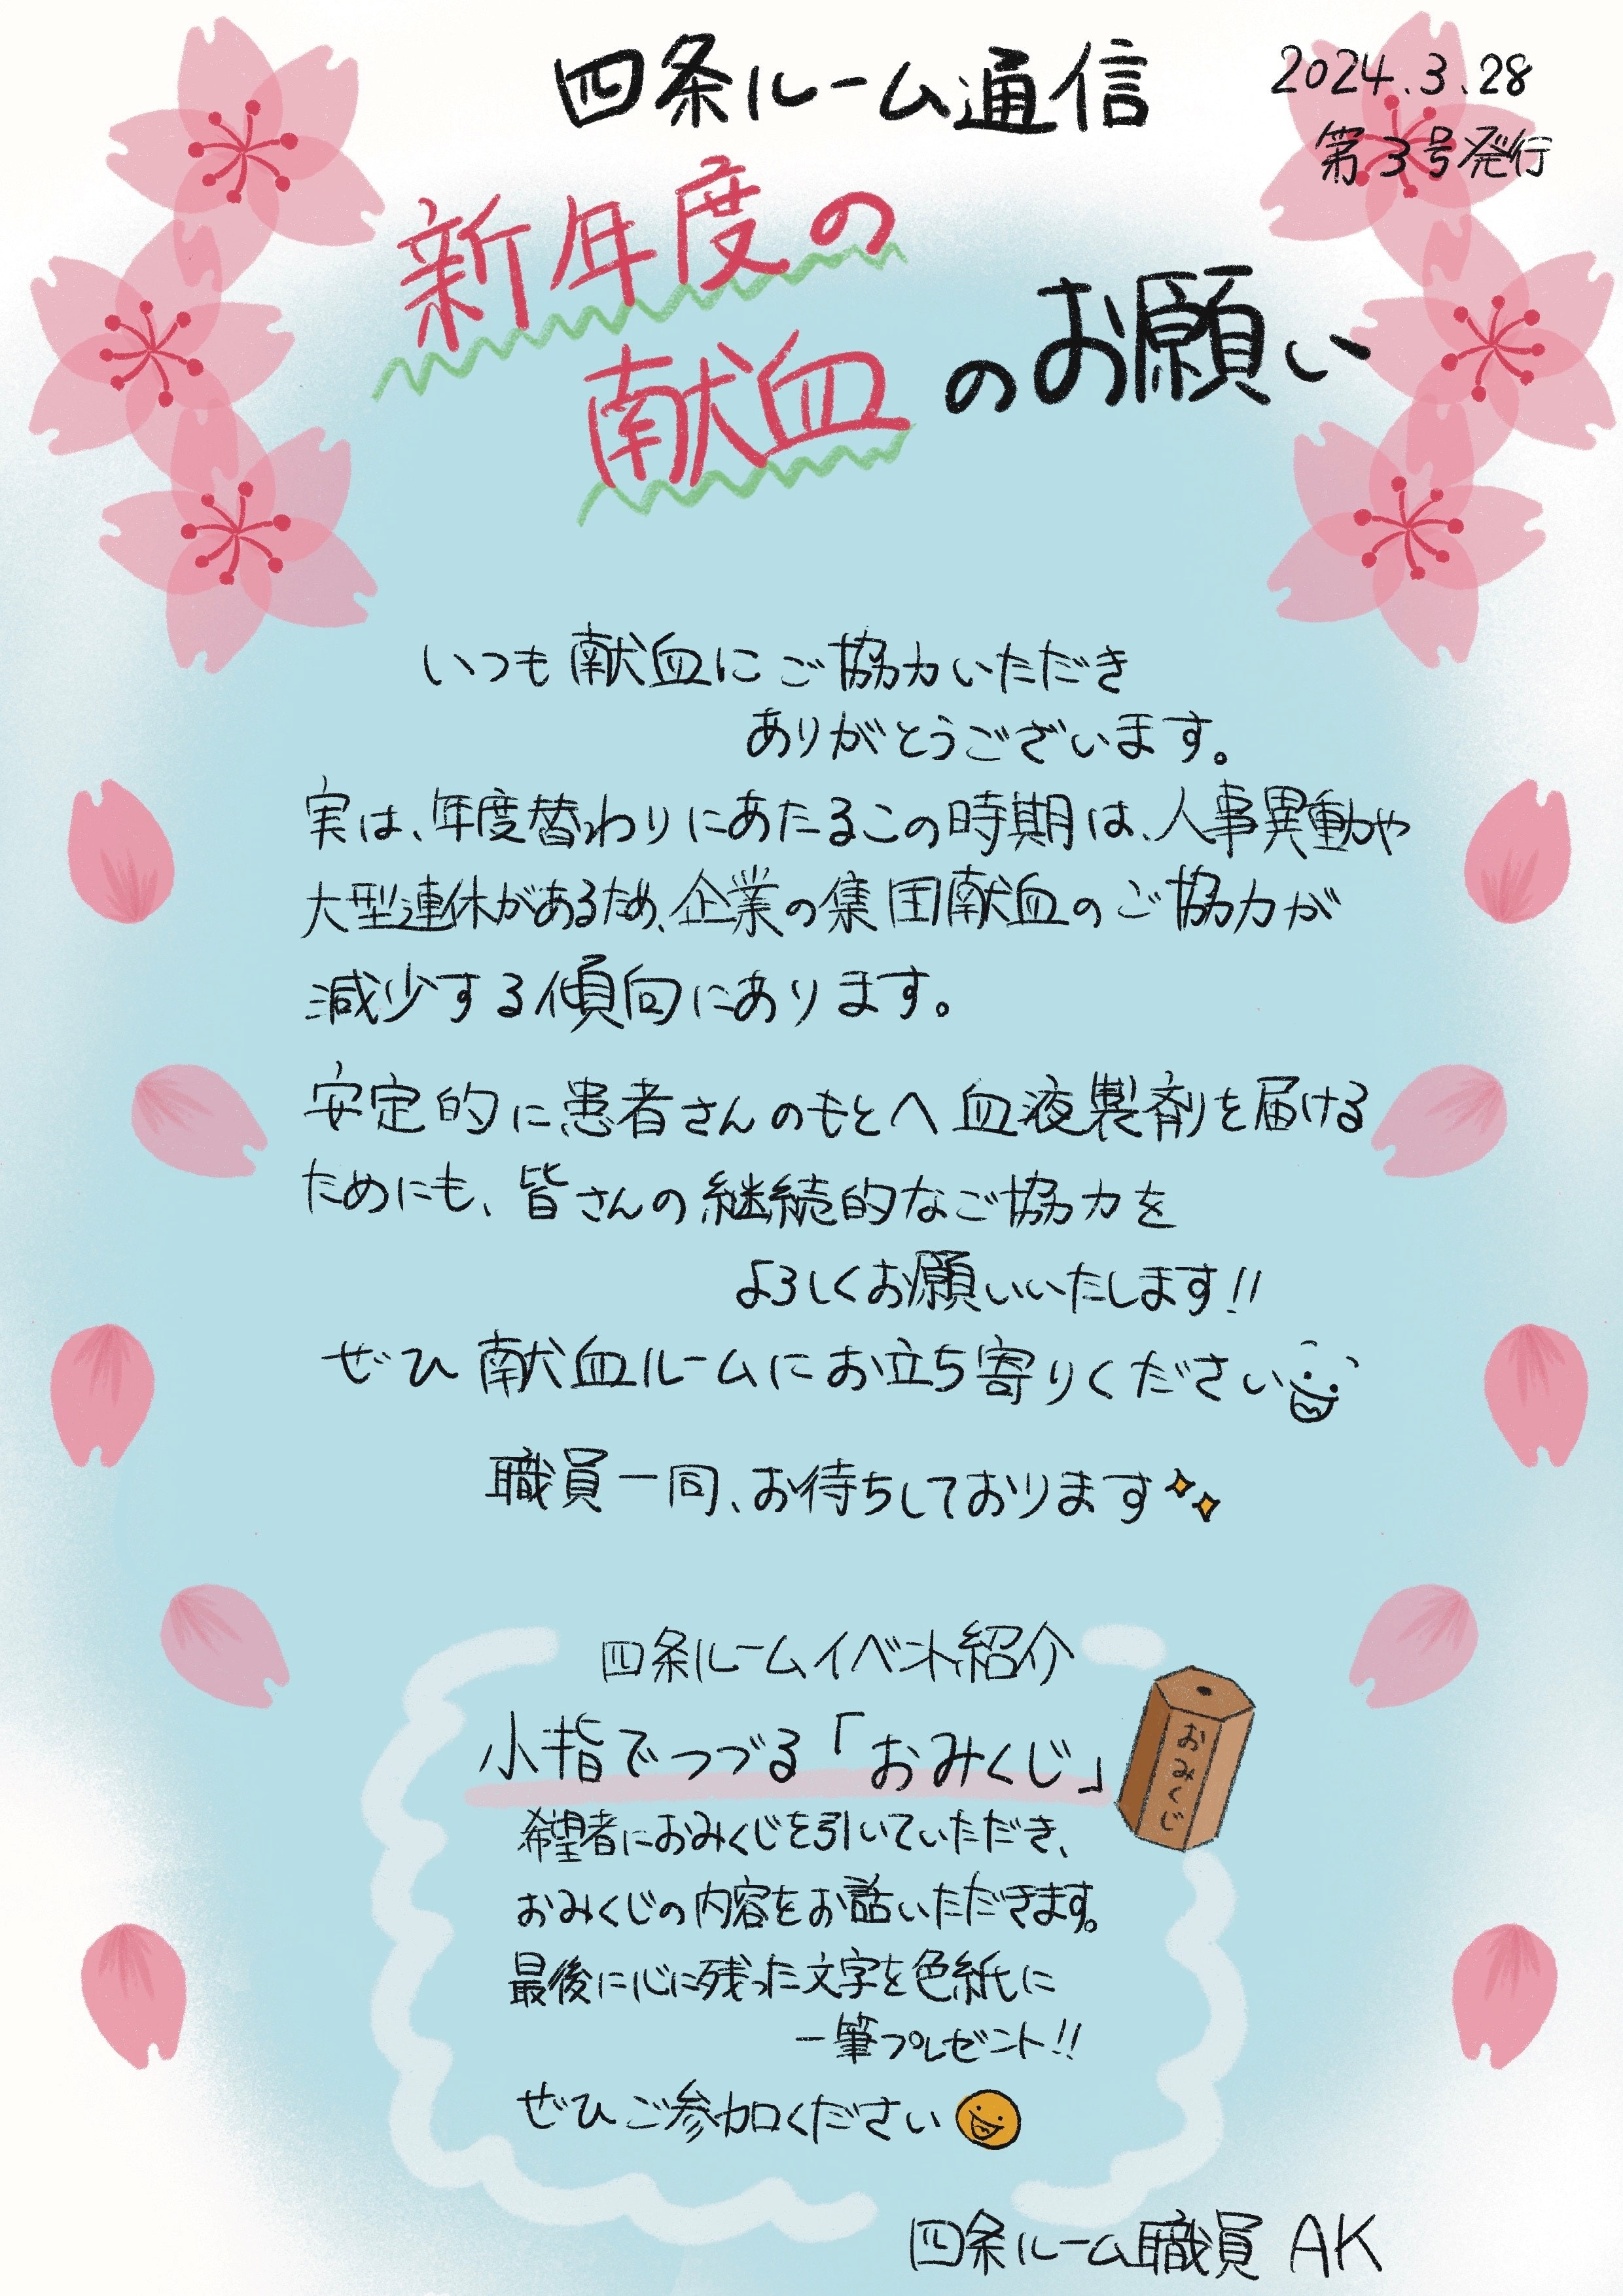 四条ルーム通信
2024.3.28
第3号発行
新年度の
献血のお願い
いつも献血にご協力いただき
ありがとうございます。
実は、年度替わりにあたるこの時期は、人事異動や
大型連休があるため、企業の集団献血のご協力が
減少する傾向にあります。
安定的に患者さんのもとへ血液製剤を届ける
ためにも、皆さんの継続的なご協力を
よろしくお願いいたします!!
ぜひ献血ルームにお立ち寄りください
職員一同、お待ちしております
四条ルームイベント紹介
小指でつづる「おみくじ」
おみくじ
希望者におみくじを引いていただき、
おみくじの内容をお話いただきます。
最後に心に残った文字を色紙に
一筆プレゼント!!
ぜひご参加ください
四条ルーム職員 AK